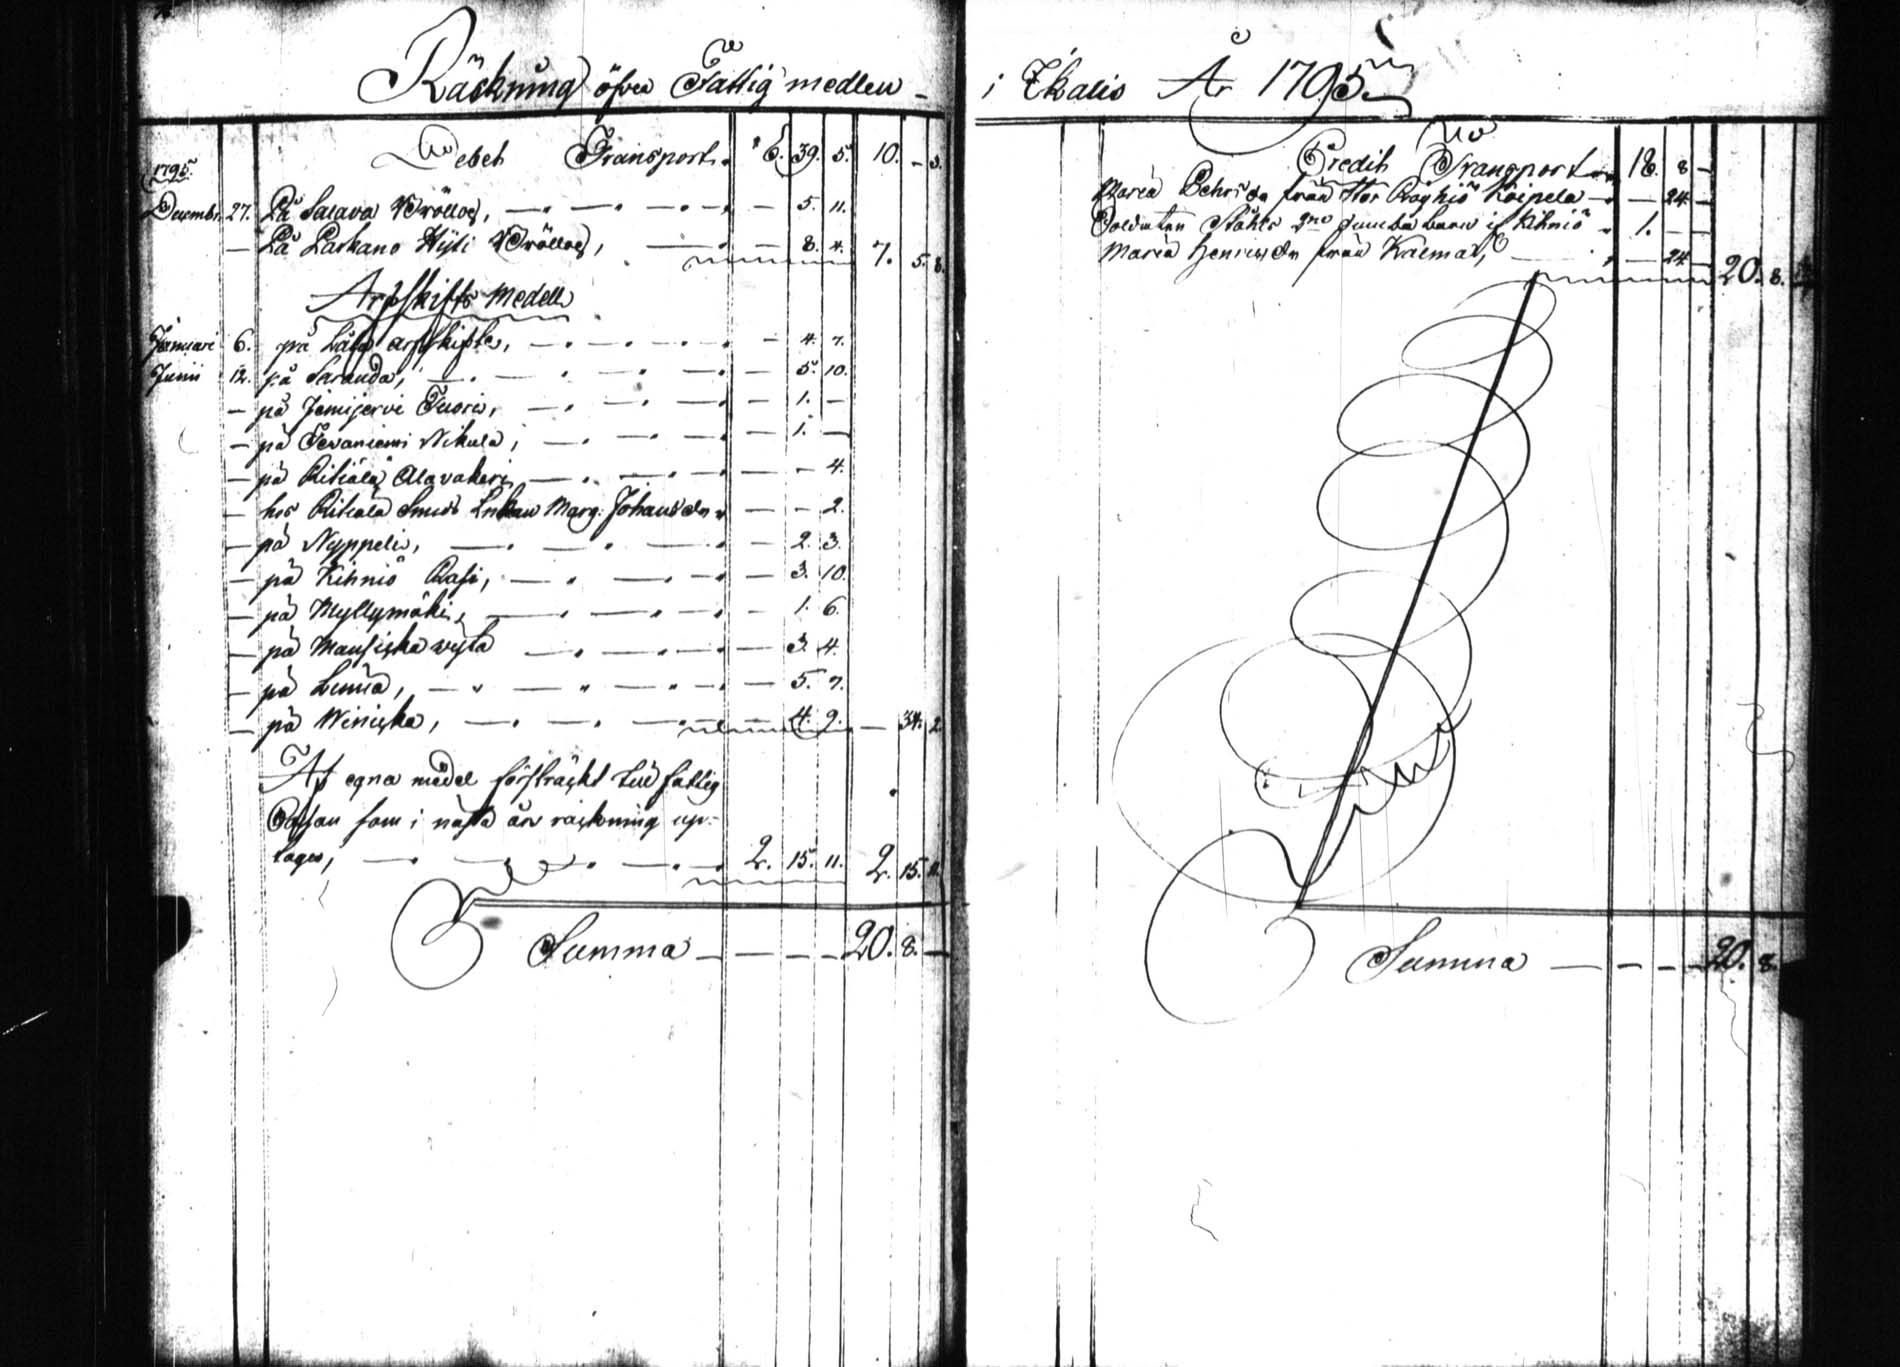 Räckning öfver Fattig medlen
Debet Transport. 6. 39. 5. 10. - 3.
1795
Decembr. 27. På Salava Bröllop, 5. 11.
På Parkano Hyti Bröllop, 8. 4. 7. 5. 8.
Arfskifts Medell
Januari 6. på arfskifte, 4. 7.
Junii 12. på Saranda, 5. 10.
på Jämijervi Tuoris, 1. -
på Nikula, 1. -
på Ritiala Alavakeri, 4.
hos Ritiala Smeds Enkan Marg. Johansdr 2.
på Nyppelis, 2. 3.
på Kihniö Rasi, 3. 10.
på Myllymäki, 1. 6.
på Mansicka 3. 4.
på Lenna, 5. 7.
på Winicka, 4. 9. - 34. 2.
Af egna medel försträckt till fattig
Cassan som i nästa års räckning up-
tages, 2. 15. 11. 2. 15. 11.
Summa 20. 8. -
i Ikalis År 1795.
Credit Transport 18. 8 -
Maria Pehrsdr från Stor Röyhiö Koipela - 24. -
Soldaten Ståhls 2ne barn i Kihniö 1. - -
Maria Henricsdr från - 24 - 20. 8.
Summa 20. 8.